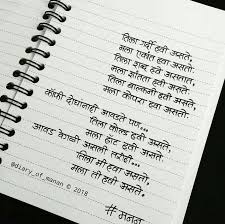 तिला गर्दी हवी असते,
मला एकांत हवा असतो.
तिला शब्द हवे असतात,
मला शांतता हवी असते.
तिला बाल्कनी हवी असते,
मला कोपरा हवा असतो.
कॉफी दोघांनाही आवडते पण...
तिला कोल्ड हवी असते,
मला हॉट हवी असते.
आवड वेगळी असली तरीही...
तिला मी हवा असतो,
मला ती हवी असते.
# मनन
@diary_of_manan © 2018